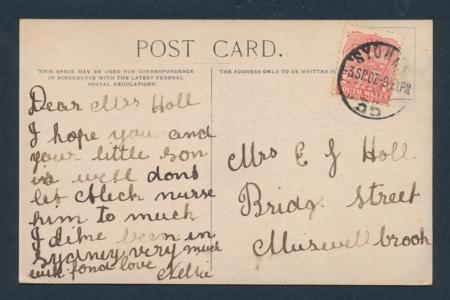 POST CARD.
THIS SPACE MAY BE USED FOR CORRESPONDENCE
IN ACCORDANCE WITH THE LATEST FEDERAL
POSTAL REGULATIONS.
THE ADDRESS ONLY TO BE WRITTEN H
SYDN
3.SP.07
NEW
SOUTH WALES
Dear Mrs Holl
I hope you and
your little son
is well dont
let nurse
him to much
I been in
Sydney very much
with fond love
Nellie
Mrs E J Holl.
Bridg. Street
Muswellbrook